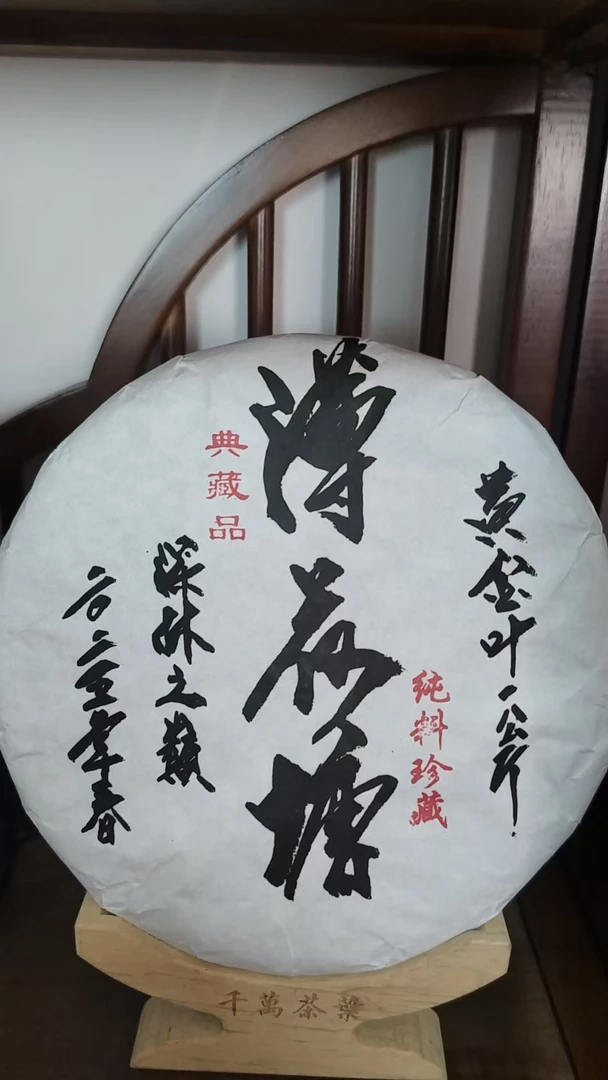 黄金叶一公斤
純料珍藏
薄荷塘
典藏品
深林之巅
二〇二五年春
千萬茶葉